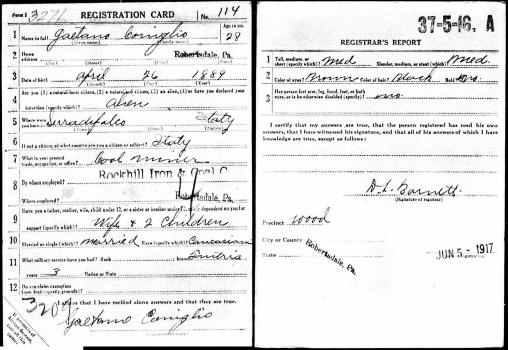 Form 1 3271 REGISTRATION CARD No. 114
1 Name in full Gaetano Coniglio Age, in yrs. 28
(Given name) (Family name)
2 Home address Robertsdale, Pa.
3 Date of birth April 26 1889
(Month) (Day) (Year)
4 Are you (1) a natural-born citizen, (2) a naturalized citizen, (3) an alien, (4) or have you declared your
intention (specify which)? Alien
5 Where were you born? Serradifalco Italy
(Town) (State) (Nation)
6 If not a citizen, of what country are you a citizen or subject? Italy
7 What is your present trade, occupation, or office? Coal miner
8 By whom employed? Rockhill Iron & Coal C
Where employed? Robertsdale, Pa.
9 Have you a father, mother, wife, child under 12, or a sister or brother under 12, solely dependent on you for
support (specify which)? Wife & 2 Children
10 Married or single (which)? Married Race (specify which)? Caucasian
11 What military service have you had? Rank branch
years 3 Nation or State
12 Do you claim exemption from draft (specify grounds)?
3209 I affirm that I have verified above answers and that they are true.
Gaetano Coniglio
If person is of African descent, tear off this corner
37-5-16, A
REGISTRAR'S REPORT
1 Tall, medium, or short (specify which)? Med Slender, medium, or stout (which)? Med.
2 Color of eyes? Brown Color of hair? Black Bald? No
3 Has person lost arm, leg, hand, foot, or both eyes, or is he otherwise disabled (specify)? no
I certify that my answers are true, that the person registered has read his own
answers, that I have witnessed his signature, and that all of his answers of which I have
knowledge are true, except as follows:
D. L. Barnett
(Signature of registrar)
Precinct Wood
City or County Robertsdale, Pa.
State JUN 5 - 1917